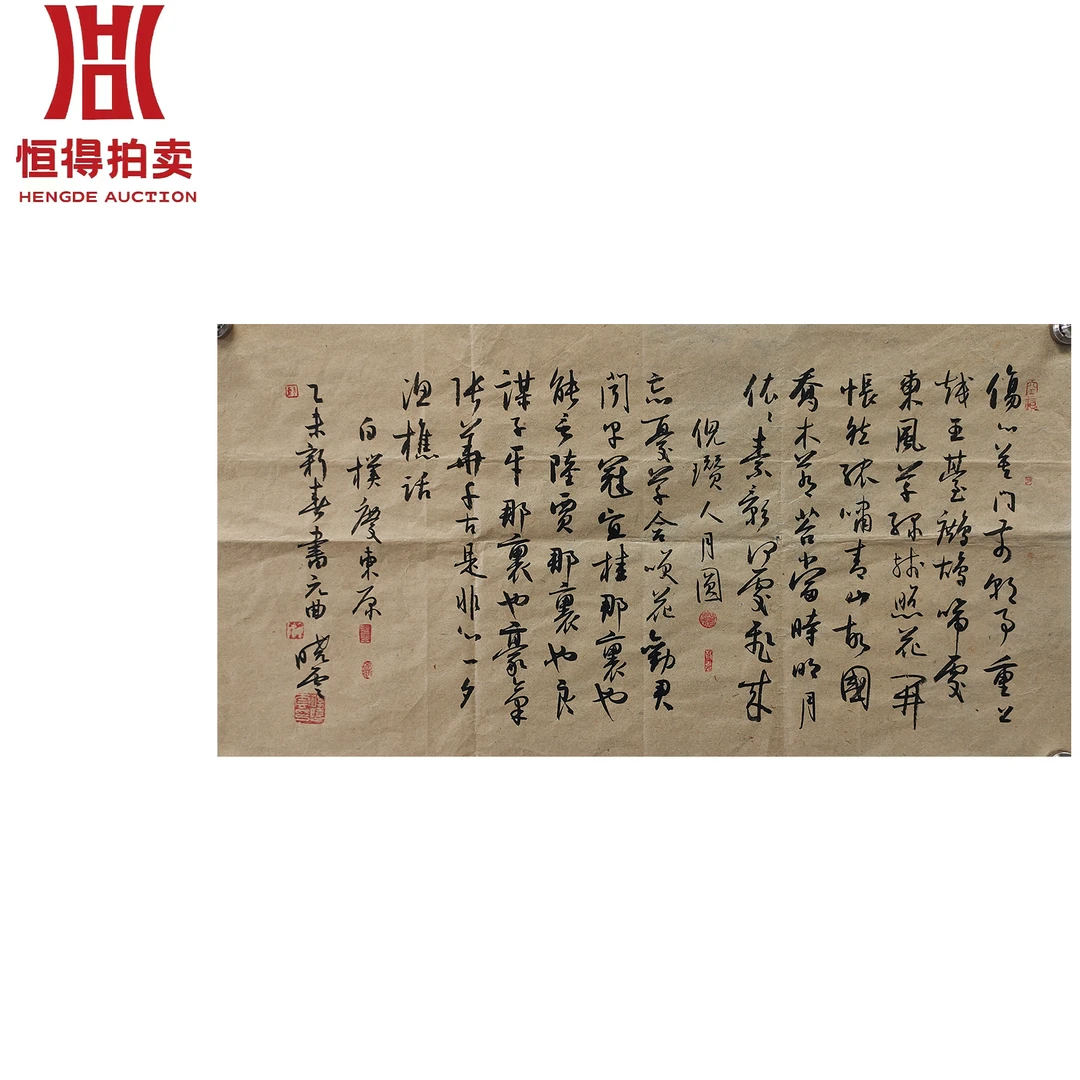 恒得拍卖
HENGDE AUCTION
傷心莫问前朝事重上
越王臺鷓鴣啼處
東風草綠残照花開
悵然孤嘯青山故國
喬木蒼苔當時明月
依々素影何處飛来
倪瓚人月圓
忘憂草含笑花勸君
闻早冠宜挂那裏也
能言陸賈那裏也良
謀子牙那裏也豪氣
張華千古是非心一夕
渔樵話
白樸慶東原
乙未新春書元曲 曉雲